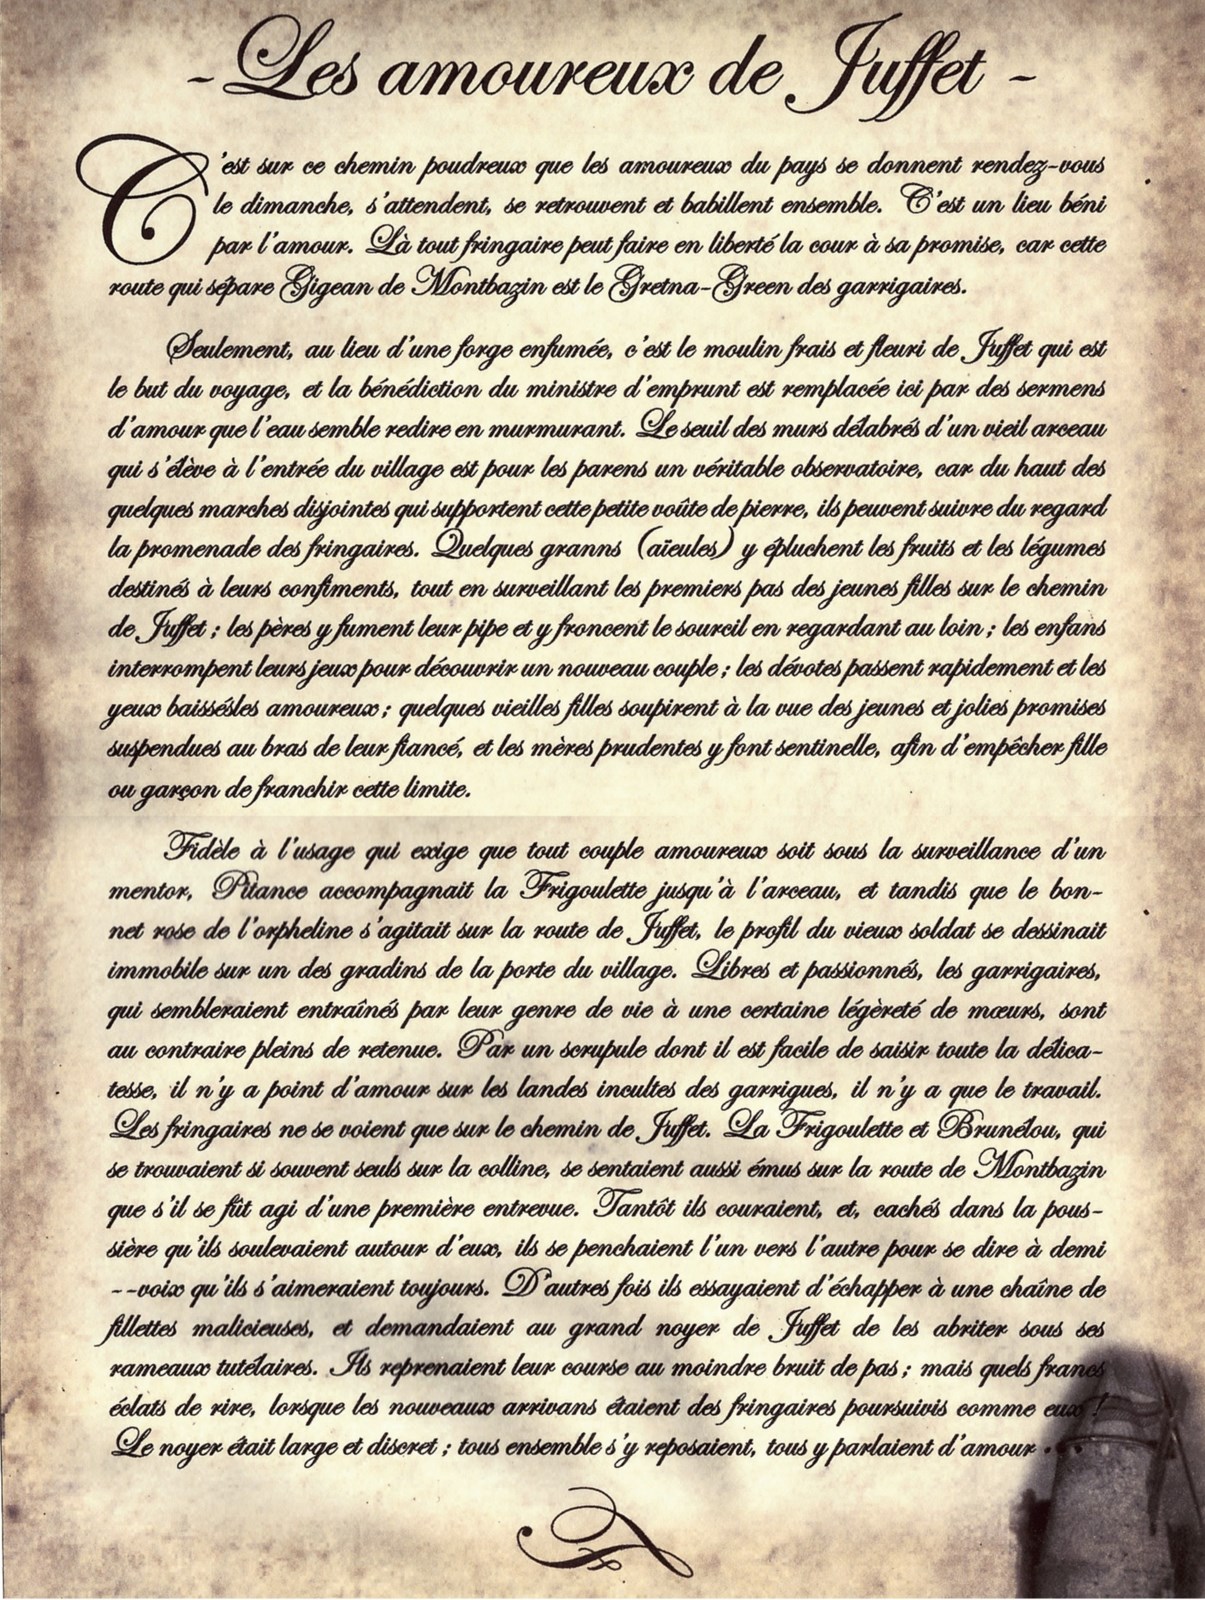 - Les amoureux de Juffet -
C'est sur ce chemin poudreux que les amoureux du pays se donnent rendez-vous
le dimanche, s'attendent, se retrouvent et babillent ensemble. C'est un lieu béni
par l'amour. Là tout fringaire peut faire en liberté la cour à sa promise, car cette
route qui sépare Gigean de Montbazin est le Gretna-Green des garrigaires.
Seulement, au lieu d'une forge enfumée, c'est le moulin frais et fleuri de Juffet qui est
le but du voyage, et la bénédiction du ministre d'emprunt est remplacée ici par des sermens
d'amour que l'eau semble redire en murmurant. Le seuil des murs délabrés d'un vieil arceau
qui s'élève à l'entrée du village est pour les parens un véritable observatoire, car du haut des
quelques marches disjointes qui supportent cette petite voûte de pierre, ils peuvent suivre du regard
la promenade des fringaires. Quelques granns (aïeules) y épluchent les fruits et les légumes
destinés à leurs confiments, tout en surveillant les premiers pas des jeunes filles sur le chemin
de Juffet ; les pères y fument leur pipe et y froncent le sourcil en regardant au loin ; les enfans
interrompent leurs jeux pour découvrir un nouveau couple ; les dévotes passent rapidement et les
yeux baissésles amoureux ; quelques vieilles filles soupirent à la vue des jeunes et jolies promises
suspendues au bras de leur fiancé, et les mères prudentes y font sentinelle, afin d'empêcher fille
ou garçon de franchir cette limite.
Fidèle à l'usage qui exige que tout couple amoureux soit sous la surveillance d'un
mentor, Pitance accompagnait la Frigoulette jusqu'à l'arceau, et tandis que le bon-
net rose de l'orpheline s'agitait sur la route de Juffet, le profil du vieux soldat se dessinait
immobile sur un des gradins de la porte du village. Libres et passionnés, les garrigaires,
qui sembleraient entraînés par leur genre de vie à une certaine légèreté de mœurs, sont
au contraire pleins de retenue. Par un scrupule dont il est facile de saisir toute la délica-
tesse, il n'y a point d'amour sur les landes incultes des garrigues, il n'y a que le travail.
Les fringaires ne se voient que sur le chemin de Juffet. La Frigoulette et Brunélou, qui
se trouvaient si souvent seuls sur la colline, se sentaient aussi émus sur la route de Montbazin
que s'il se fût agi d'une première entrevue. Tantôt ils couraient, et, cachés dans la pous-
sière qu'ils soulevaient autour d'eux, ils se penchaient l'un vers l'autre pour se dire à demi
--voix qu'ils s'aimeraient toujours. D'autres fois ils essayaient d'échapper à une chaîne de
fillettes malicieuses, et demandaient au grand noyer de Juffet de les abriter sous ses
rameaux tutélaires. Ils reprenaient leur course au moindre bruit de pas ; mais quels francs
éclats de rire, lorsque les nouveaux arrivans étaient des fringaires poursuivis comme eux !
Le noyer était large et discret ; tous ensemble s'y reposaient, tous y parlaient d'amour ...